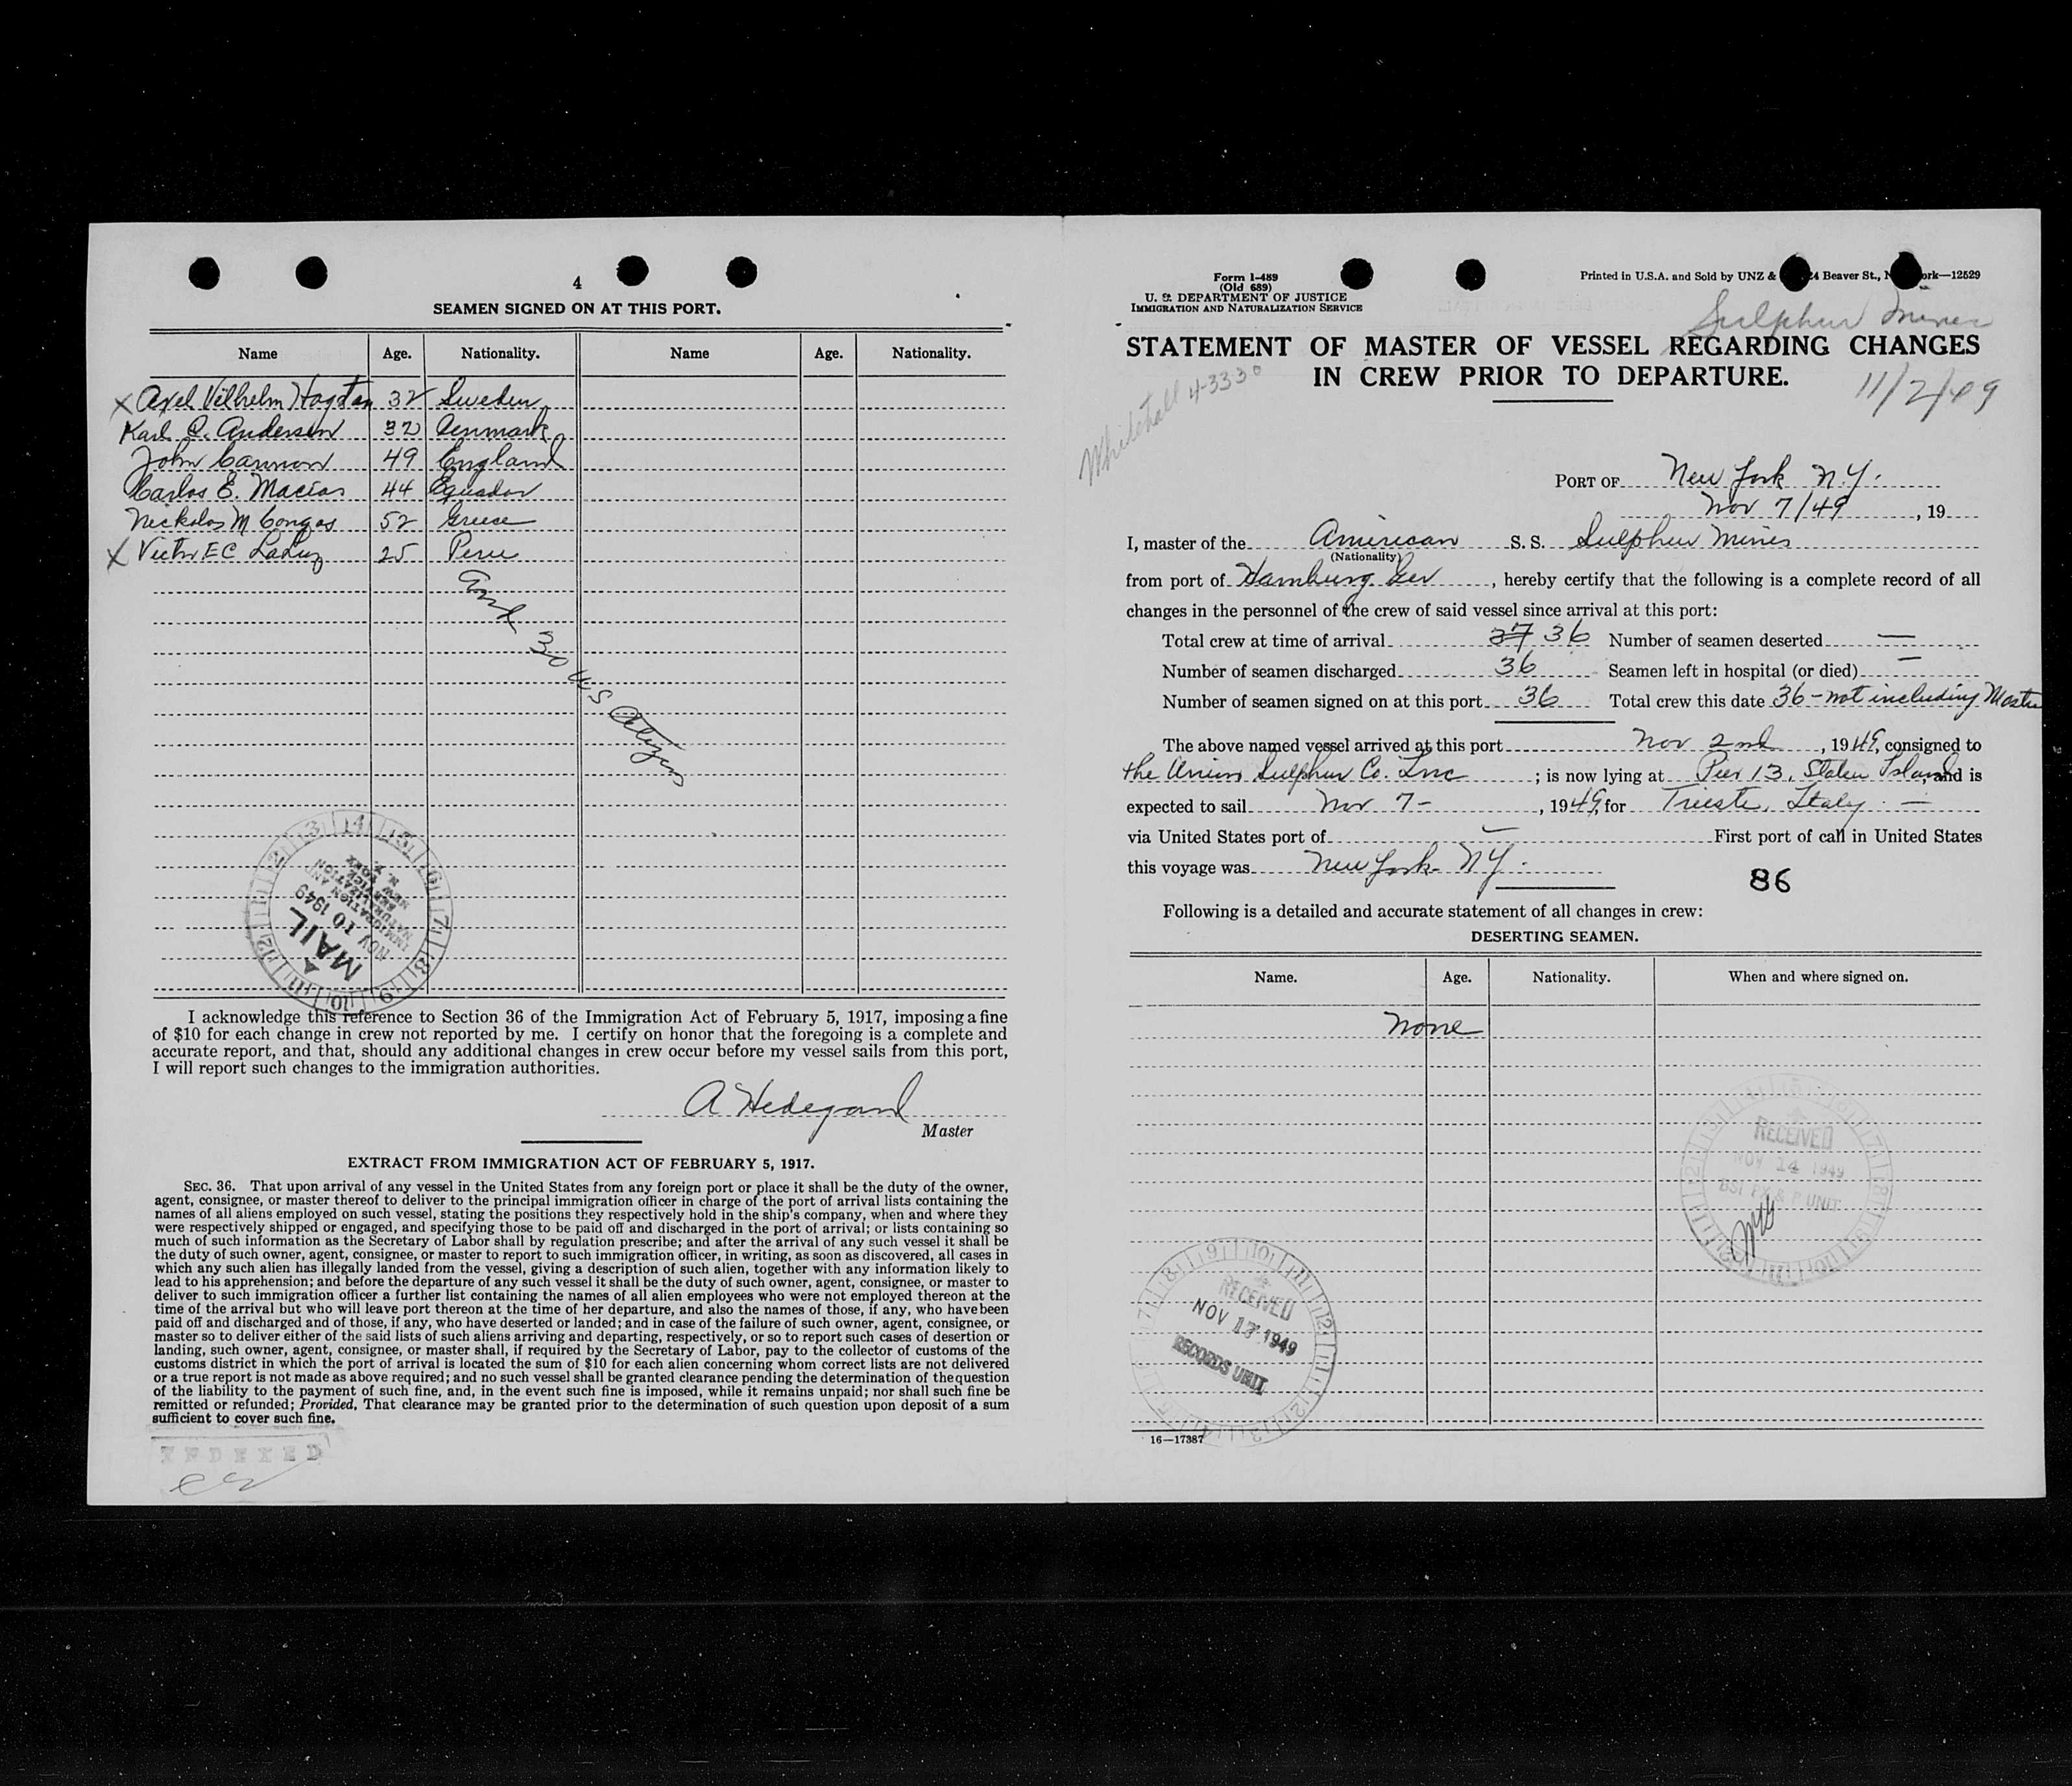 4
SEAMEN SIGNED ON AT THIS PORT.
Name Age. Nationality. Name Age. Nationality.
X Axel Vilhelm 32 Sweden
Karl O. Andersen 32 Denmark
John Cannon 49 England
Carlos E. Macias 44 Equador
Nickolos M Congos 52 Greece
X Victor E C LaLuz 25 Peru
and 30 US Citizens
MAIL
NOV 10 1949
IMMIGRATION AND
NATURALIZATION
SERVICE
NEW YORK
N. Y.
I acknowledge this reference to Section 36 of the Immigration Act of February 5, 1917, imposing a fine
of $10 for each change in crew not reported by me. I certify on honor that the foregoing is a complete and
accurate report, and that, should any additional changes in crew occur before my vessel sails from this port,
I will report such changes to the immigration authorities.
A Hedegard
Master
EXTRACT FROM IMMIGRATION ACT OF FEBRUARY 5, 1917.
SEC. 36. That upon arrival of any vessel in the United States from any foreign port or place it shall be the duty of the owner,
agent, consignee, or master thereof to deliver to the principal immigration officer in charge of the port of arrival lists containing the
names of all aliens employed on such vessel, stating the positions they respectively hold in the ship's company, when and where they
were respectively shipped or engaged, and specifying those to be paid off and discharged in the port of arrival; or lists containing so
much of such information as the Secretary of Labor shall by regulation prescribe; and after the arrival of any such vessel it shall be
the duty of such owner, agent, consignee, or master to report to such immigration officer, in writing, as soon as discovered, all cases in
which any such alien has illegally landed from the vessel, giving a description of such alien, together with any information likely to
lead to his apprehension; and before the departure of any such vessel it shall be the duty of such owner, agent, consignee, or master to
deliver to such immigration officer a further list containing the names of all alien employees who were not employed thereon at the
time of the arrival but who will leave port thereon at the time of her departure, and also the names of those, if any, who have been
paid off and discharged and of those, if any, who have deserted or landed; and in case of the failure of such owner, agent, consignee, or
master so to deliver either of the said lists of such aliens arriving and departing, respectively, or so to report such cases of desertion or
landing, such owner, agent, consignee, or master shall, if required by the Secretary of Labor, pay to the collector of customs of the
customs district in which the port of arrival is located the sum of $10 for each alien concerning whom correct lists are not delivered
or a true report is not made as above required; and no such vessel shall be granted clearance pending the determination of the question
of the liability to the payment of such fine, and, in the event such fine is imposed, while it remains unpaid; nor shall such fine be
remitted or refunded; Provided, That clearance may be granted prior to the determination of such question upon deposit of a sum
sufficient to cover such fine.
INDEXED
Form I-489
(Old 689)
U. S. DEPARTMENT OF JUSTICE
IMMIGRATION AND NATURALIZATION SERVICE
Printed in U.S.A. and Sold by UNZ & 24 Beaver St., N ork—12529
Sulphur Mines
STATEMENT OF MASTER OF VESSEL REGARDING CHANGES
IN CREW PRIOR TO DEPARTURE.
11/2/49
Whitehall 4-3330
PORT OF New York N.Y.
Nov 7/49, 19
I, master of the American S. S. Sulphur Mines
(Nationality)
from port of Hamburg Ger, hereby certify that the following is a complete record of all
changes in the personnel of the crew of said vessel since arrival at this port:
Total crew at time of arrival 37 36 Number of seamen deserted —
Number of seamen discharged 36 Seamen left in hospital (or died) —
Number of seamen signed on at this port 36 Total crew this date 36 - not including Master
The above named vessel arrived at this port Nov 2nd, 1949, consigned to
the Union Sulphur Co. Inc; is now lying at Pier 13, Staten Island, and is
expected to sail Nov 7 -, 1949, for Trieste, Italy. —
via United States port of — First port of call in United States
this voyage was New York NY.
86
Following is a detailed and accurate statement of all changes in crew:
DESERTING SEAMEN.
Name. Age. Nationality. When and where signed on.
None
RECEIVED
NOV 14 1949
BSI PX & P UNIT
RECEIVED
NOV 17 1949
RECORDS UNIT
16—17387